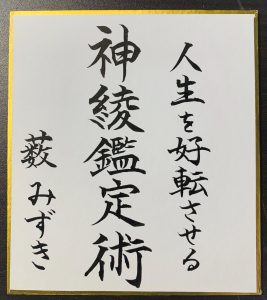 人生を好転させる
神綾鑑定術
薮みずき